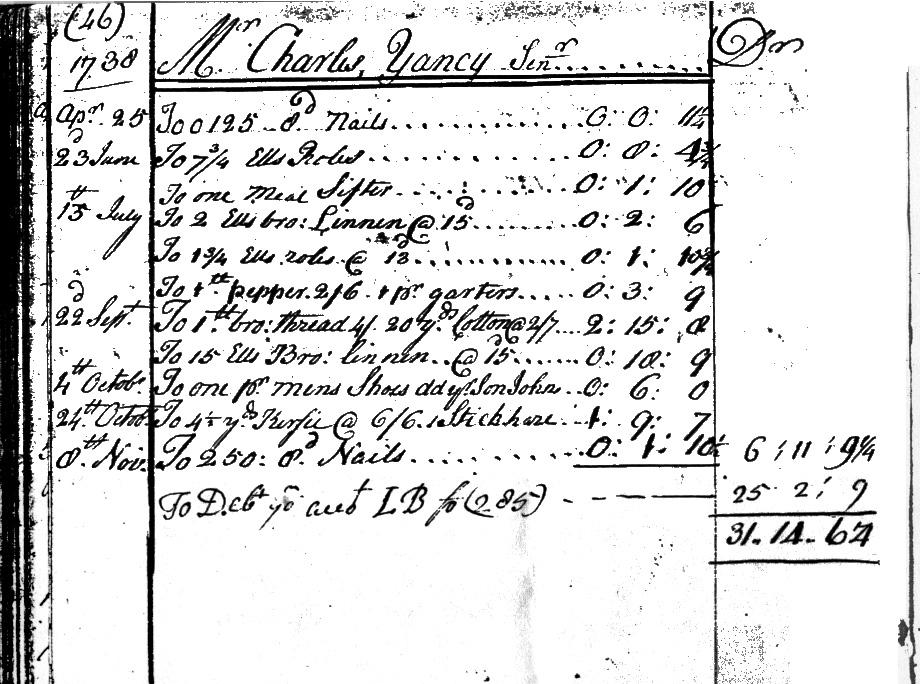 (46)
1738 Mr. Charles Yancy Senr. Dr
Apr. 25 To 0125 8d Nails 0: 0: 11¼
23d June To 7¾ Ells Roles 0: 8: 4¾
To one Meal Sifter 0: 1: 10
15th July To 2 Ells bro: Linnen @ 15d 0: 2: 6
To 1¾ Ells roles @ 13d 0: 1: 10¾
To 1 tt pepper 2/6 1 pr garters 0: 3: 9
22d Sept. To 1 tt bro: thread 4/. 20 yds Cotton @ 2/7 2: 15: 8
To 15 Ells Bro: linnen @ 15d 0: 18: 9
4th Octobr To one pr mens Shoes dd yr Son John 0: 6: 0
24th Octobr To 4½ yds Kersie @ 6/6. 1 Stick hare 1: 9: 7
8th Nov. To 250: 8d Nails 0: 1: 10½ 6: 11: 9¼
To Debt yo acct LB fo (285) 25 2: 9
31. 14. 6¼